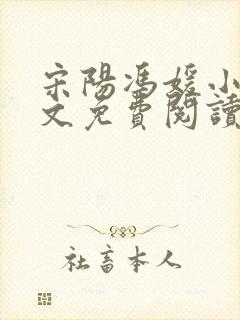 宋陽馮媛小
文免費閱讀
社畜本人